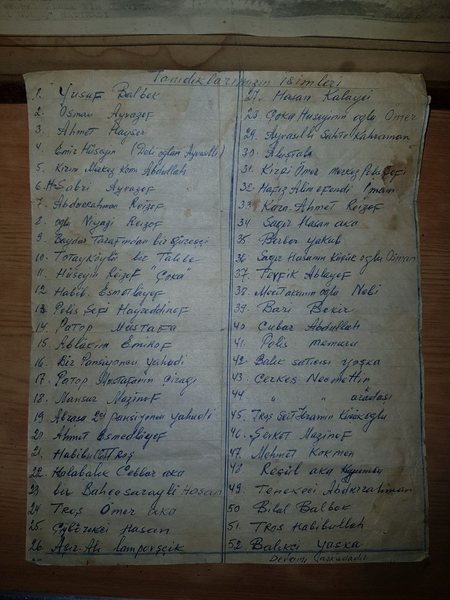 Tanıdıklarımızın isimleri
1. Yusuf Balbek
2. Osman Ayvazof
3. Ahmet Kayser
4. Emir Hüseyin (Deli oğlan Ayvasılı)
5. Kırım Merkez Kom Abdullah
6. H. Sabri Ayvazof
7. Abdurrahman Reizof
8. oğlu Niyazi Reizof
9. Baydar Tarafından bir
10. Totayköylü bir Talebe
11. Hüseyin Reizof "Çoka"
12. Habib Esmetliyef
13. Polis Şefi Hayreddinof
14. Patop Mustafa
15. Ablakim Eminof
16. Bir Pansiyoncu yahudi
17. Patop Mustafanın Çırağı
18. Mansur Mazinof
19. 2ci pansiyoncu yahudi
20. Ahmet Esmedliyef
21. Habibullah Traş
22. Kalabalık Cebbar aka
23 bir Bahçesaraylı Hasan
24 Traş Ömer Aka
25. Hasan
26. Ali
27. Hasan Kalayci
28. Çoka Hüseyinin oğlu Ömer
29. Ayvasıllı Kahraman
30. Aluştalı
31. Kırpi Ömer merkez
32. Hafız Alim efendi Imam
33. Kara Ahmet Reizof
34 Sağır Hasan aka
35 Berber yakub
36 Sağır Hasanın Küçük oğlu Osman
37. Tevfik Ablayef
38. Nebi
39. Bari Bekir
40. Abdullah
41. Polis memuru
42. Balık satıcısı yaşka
43. Çerkes Necmettin
44. " " aradası
45. Traş Seit İbramın Küçük oğlu
46. Şevket Mazinof
47. Mehmet Kokmen
48 Resül aka
49. Tenekeci Abdurahiman
50. Bilal Balbek
51. Traş Habibullah
52. Balıkçı yaşka
Devamı arkadadır